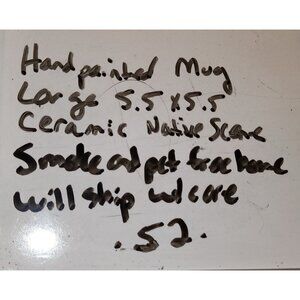 Handpainted Mug
Large 5.5 x 5.5
Ceramic Native Scene
Smoke and pet free home
will ship w/ care
.52.